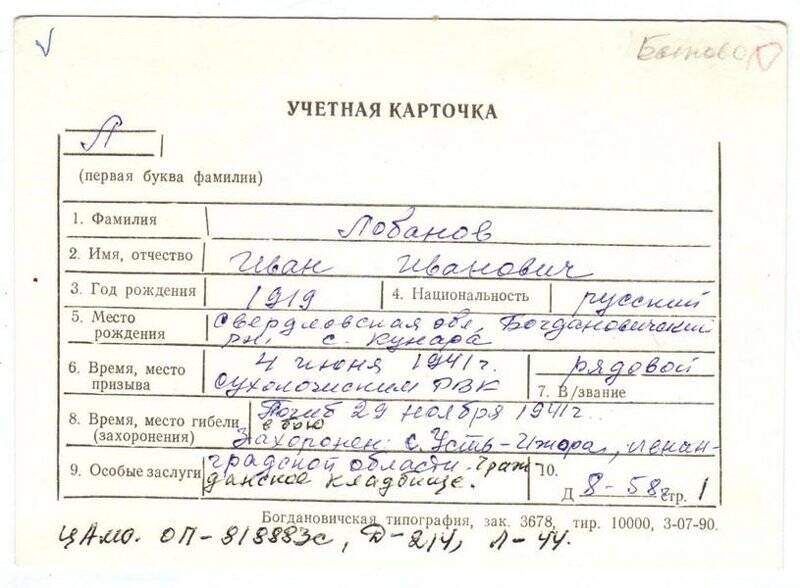 УЧЕТНАЯ КАРТОЧКА
Л
(первая буква фамилии)
1. Фамилия Лобанов
2. Имя, отчество Иван Иванович
3. Год рождения 1919 4. Национальность русский
5. Место рождения Свердловская обл, Богдановичский
рн, с. Кунара
6. Время, место призыва 4 июня 1941г.
Сухоложским РВК
рядовой
7. В/звание
8. Время, место гибели (захоронения) Погиб 29 ноября 1941г.
в бою
Захоронен: с. Усть-Ижора, Ленин-
9. Особые заслуги градской области. Граж
данское кладбище.
10.
Д 8-58г стр. 1
Богдановичская типография, зак. 3678, тир. 10000, 3-07-90.
ЦАМО. ОП-818883с, Д-214, Л-44.